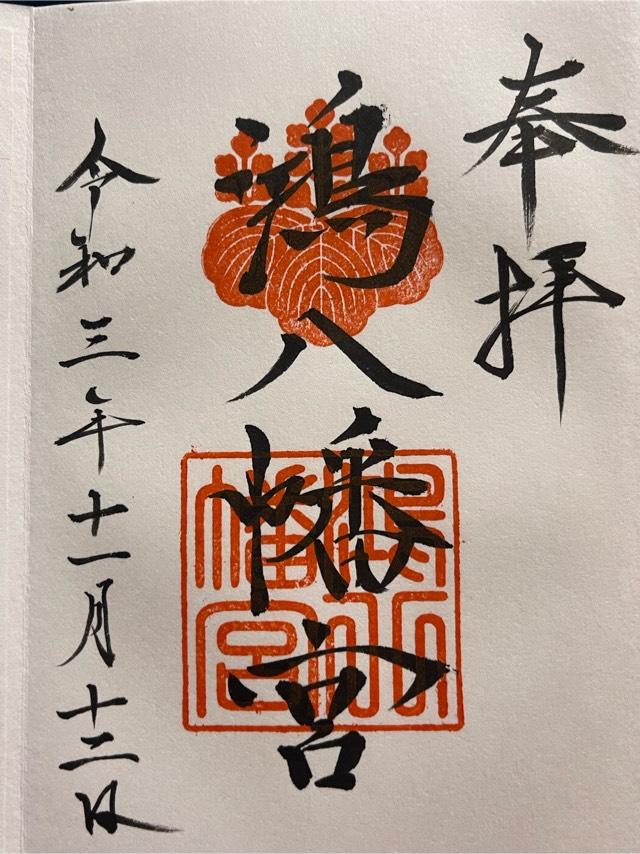 奉拝
鴻八幡宮
令和三年十一月十二日
鴻八幡宮